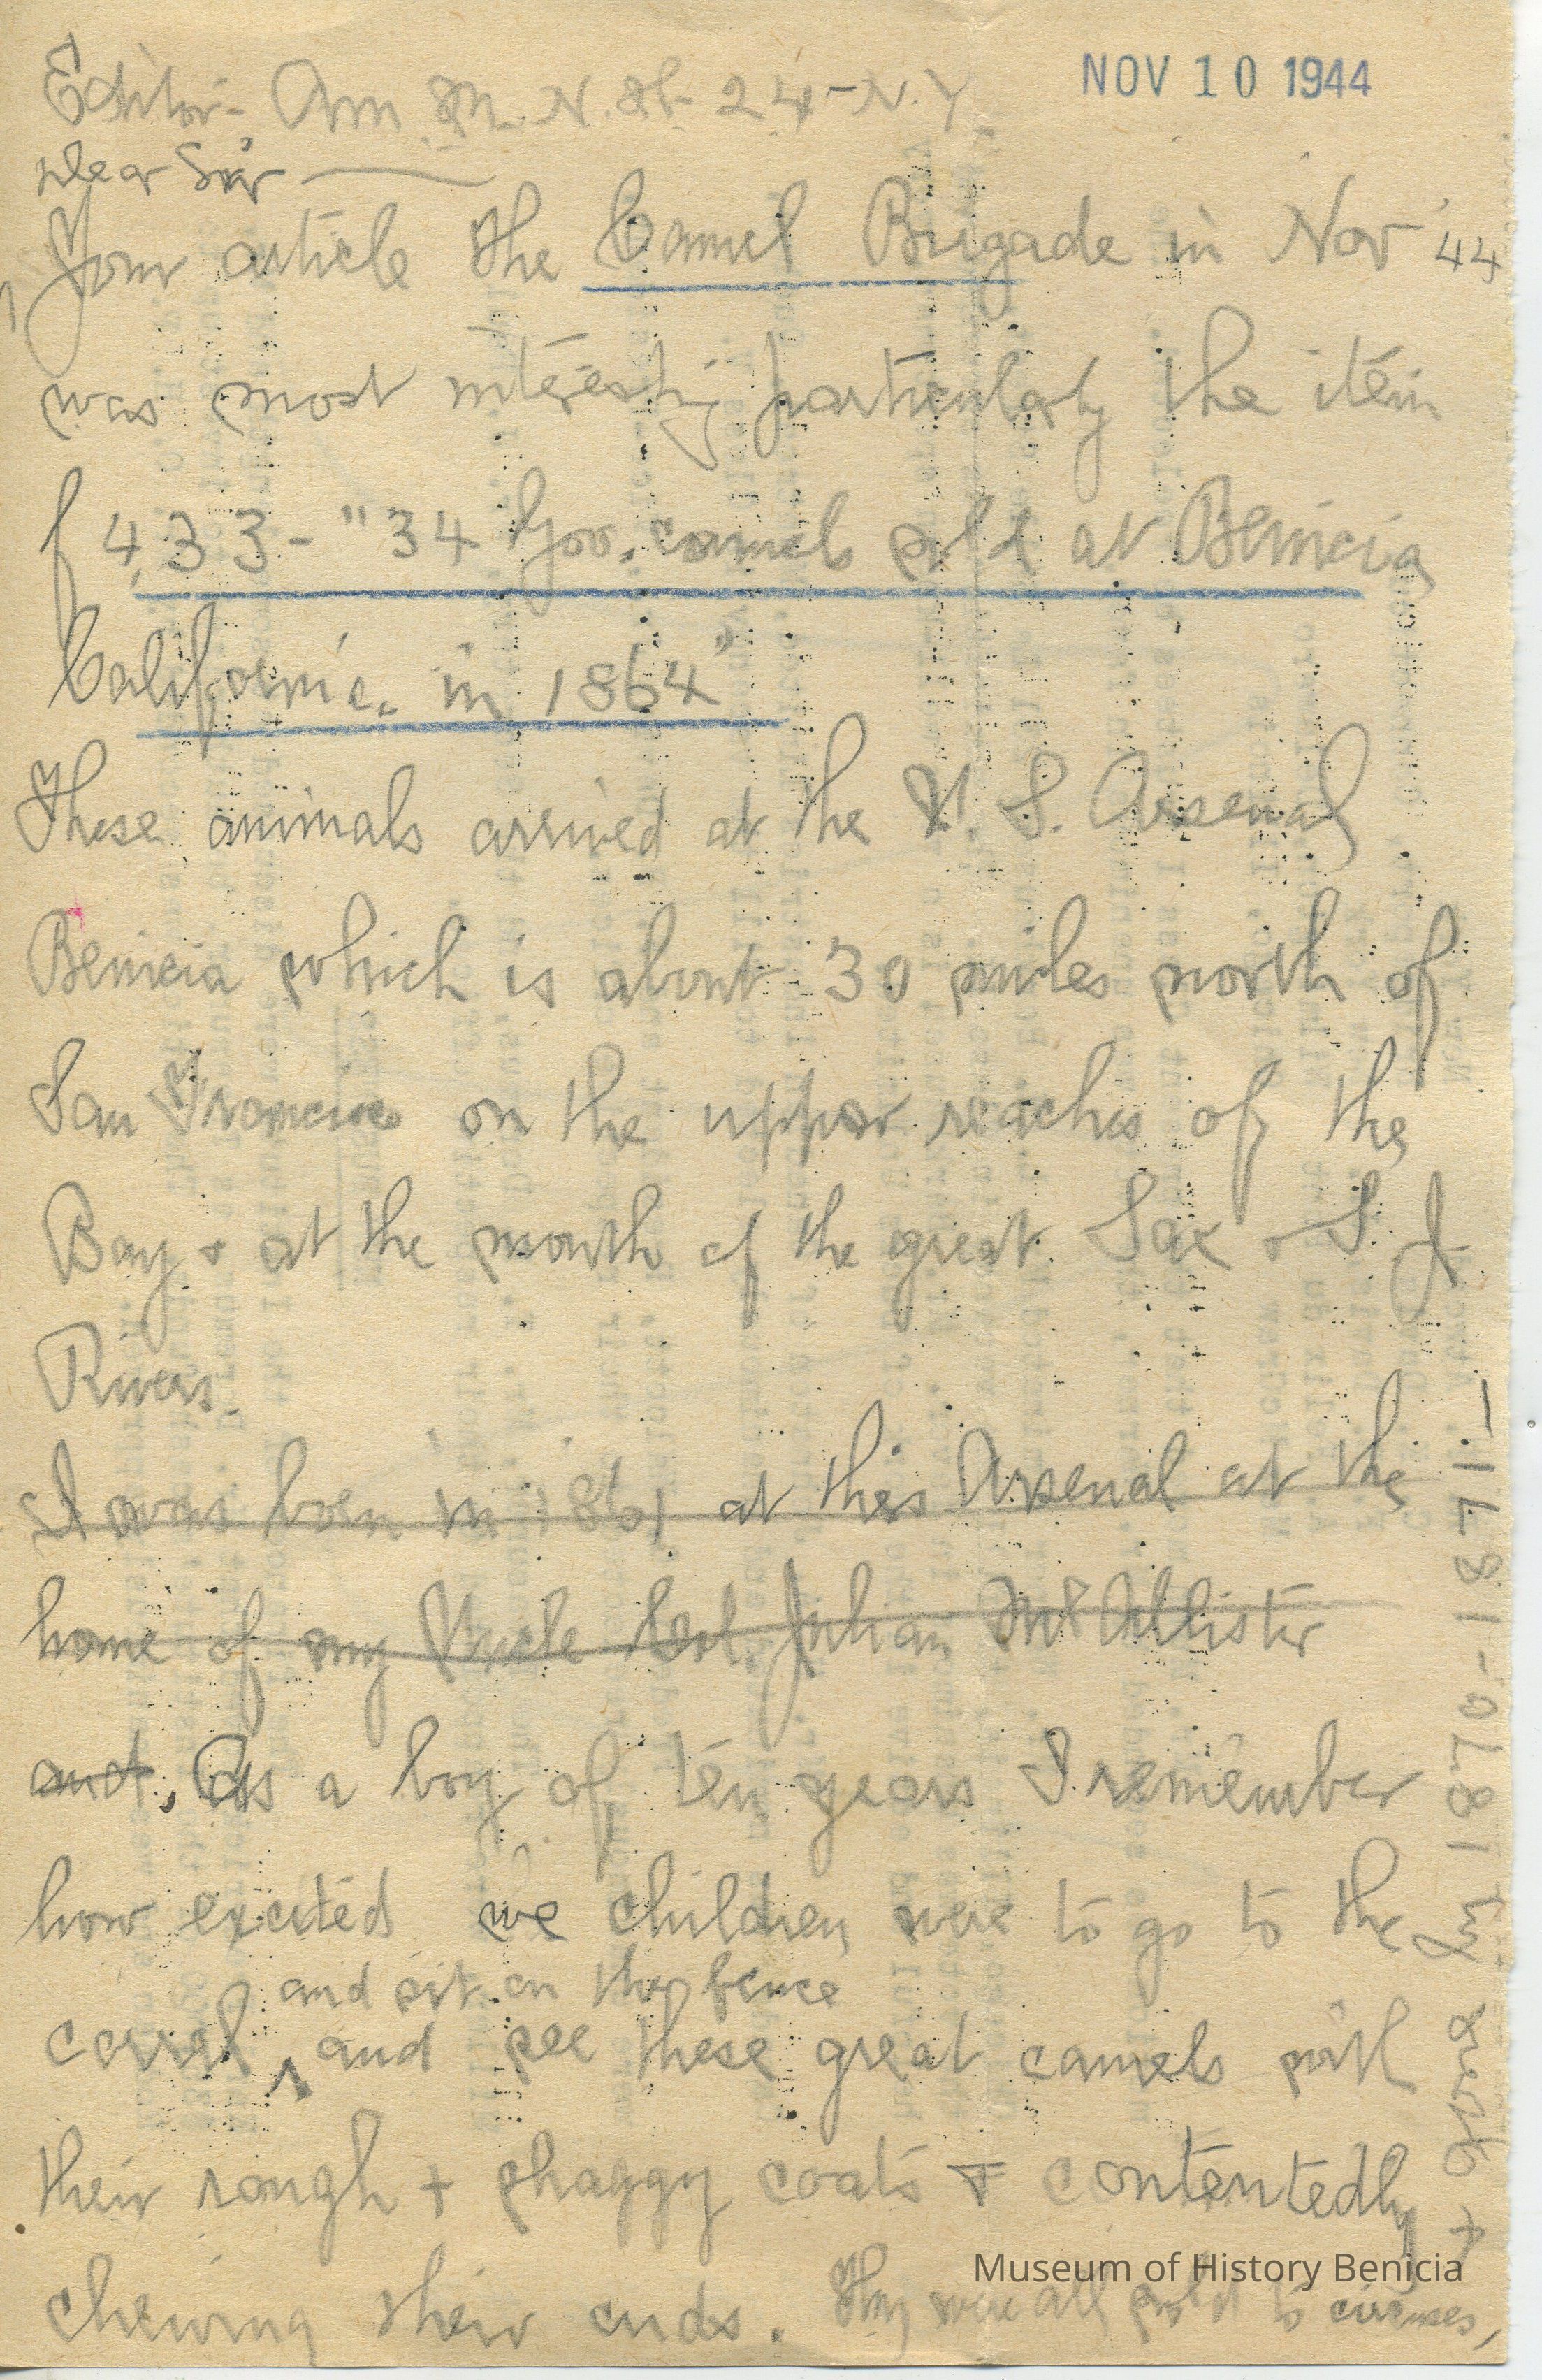 NOV 10 1944
Editor- Am M. N. H- 24-N.Y
Dear Sir
Your article the Camel Brigade in Nov '44
was most interesting particularly the item
p 433-"34 Gov. camels sold at Benicia,
California. in 1864"
These animals arrived at the U. S. Arsenal
Benicia which is about 30 miles north of
San Francisco on the upper reaches of the
Bay + at the mouth of the great Sac + S. J
Rivers.
I was born in 1861 at this Arsenal at the
home of my Uncle Col. Julian McAllister
and, As a boy of ten years I remember
how excited we children were to go to the
and sit on the fence
corral ^ and see these great camels with
their rough + shaggy coats + contentedly
chewing their cuds. They were all sold to circuses,
in 1870-1871-
Museum of History Benicia